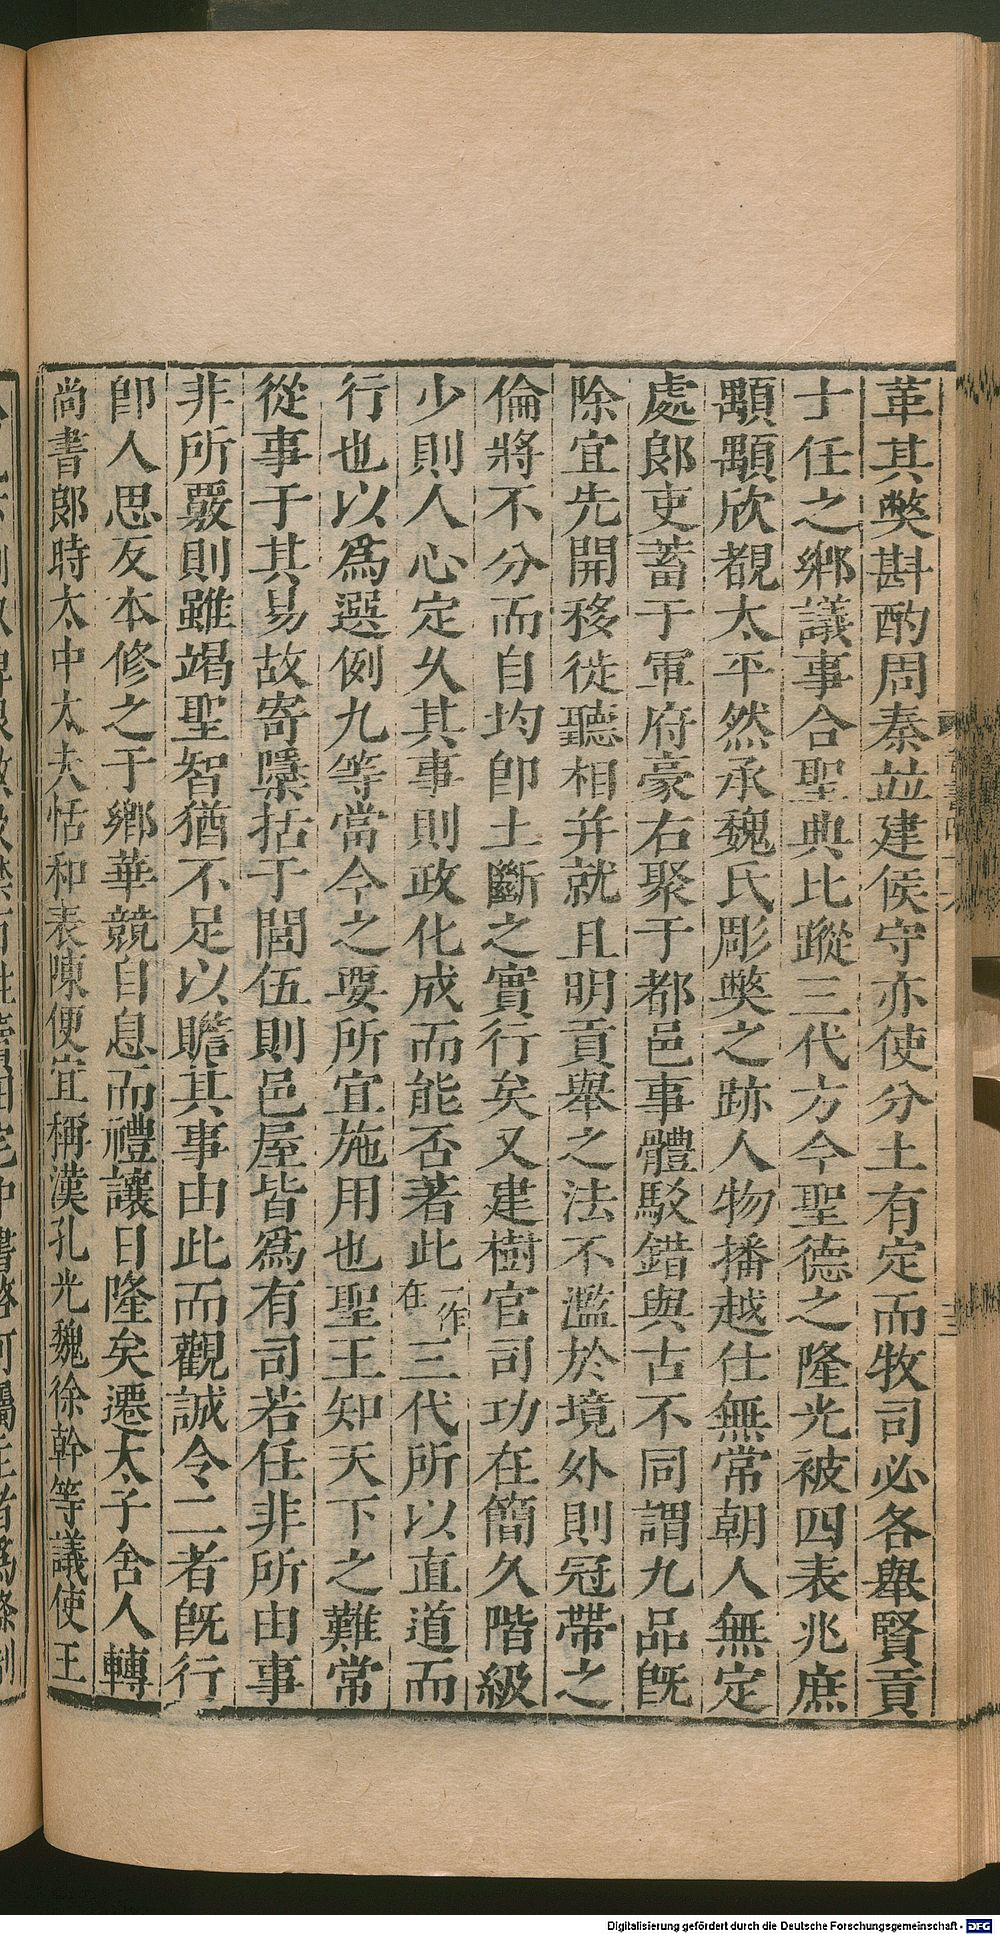 革其弊斟酌周秦並建侯守亦使分土有定而牧司必各舉賢貢
士任之鄉議事合聖典比蹤三代方今聖德之隆光被四表兆庶
顒顒欣覩太平然承魏氏彫弊之跡人物播越仕無常朝人無定
處郎吏蓄于軍府豪右聚于都邑事體駁錯與古不同謂九品旣
除宜先開移徙聽相并就且明貢舉之法不濫於境外則冠帶之
倫將不分而自均卽土斷之實行矣又建樹官司功在簡久階級
少則人心定久其事則政化成而能否著此一作在三代所以直道而
行也以爲選例九等當今之要所宜施用也聖王知天下之難常
從事于其易故寄隱括于閭伍則邑屋皆爲有司若任非所由事
非所覈則雖竭聖智猶不足以贍其事由此而觀誠令二者旣行
卽人思反本修之于鄉華競自息而禮讓日隆矣遷太子舍人轉
尚書郎時太中大夫恬和表陳便宜稱漢孔光魏徐幹等議使王
Digitalisierung gefördert durch die Deutsche Forschungsgemeinschaft - DFG